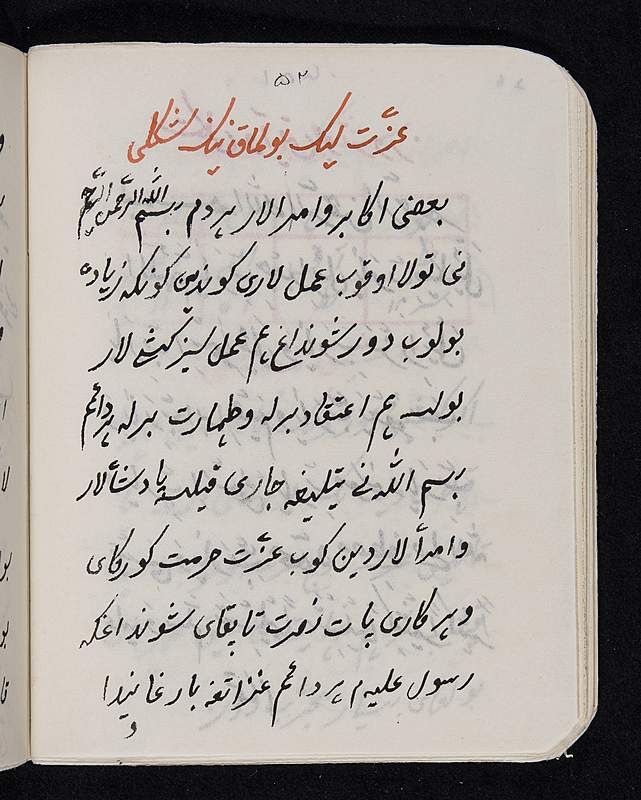 ۵۲
عزّت لیک بولماق نینک شکلی
بعضی اکابر وامرالار هر دم بسم الله الرحمن الرحیم
نی تولا اوقوب عمل لاری کوندین کونکه زیاده
بولوب دور شونداغ هم عمل سیز کشی لار
بولسه هم اعتقاد برله وطهارت برله هر دائم
بسم الله نی تیلیغه جاری قیلسه پادشاه لار
وامرألار دین کوب عزّت حرمت کورکای
وهر کاری پات نصرت تابقای شونداغکه
رسول علیه م هر دائم غزاتغه بارغانیدا
و